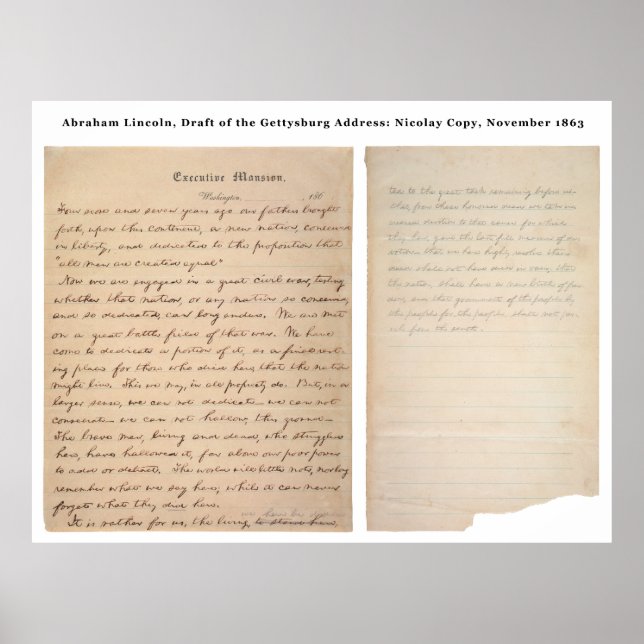 Abraham Lincoln, Draft of the Gettysburg Address: Nicolay Copy, November 1863
Executive Mansion,
Washington, , 186
Four score and seven years ago our fathers brought
forth, upon this continent, a new nation, conceived
in liberty, and dedicated to the proposition that
"all men are created equal"
Now we are engaged in a great civil war, testing
whether that nation, or any nation so conceived,
and so dedicated, can long endure. We are met
on a great battle field of that war. We have
come to dedicate a portion of it, as a final rest-
ing place for those who died here, that the nation
might live. This we may, in all propriety do. But, in a
larger sense, we can not dedicate – we can not
consecrate – we can not hallow, this ground –
The brave men, living and dead, who struggled
here, have hallowed it, far above our poor power
to add or detract. The world will little note, nor long
remember what we say here; while it can never
forget what they did here.
we here be
It is rather for us, the living, to stand here,
ted to the great task remaining before us –
that, from these honored dead we take in-
creased devotion to that cause for which
they here, gave the last full measure of de-
votion – that we here highly resolve these
dead shall not have died in vain; that
the nation, shall have a new birth of free-
dom, and that government of the people by
the people for the people, shall not per-
ish from the earth.